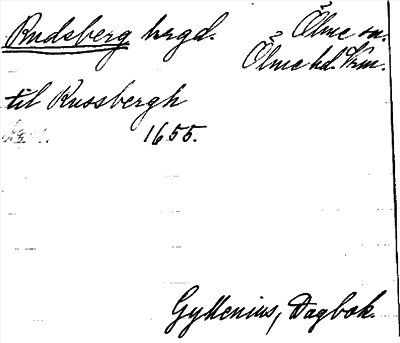 Rudsberg hrgd.
Ölme sn.
Ölme hd. Vrm.
til Russbergh
1655.
Gyllenius, Dagbok.